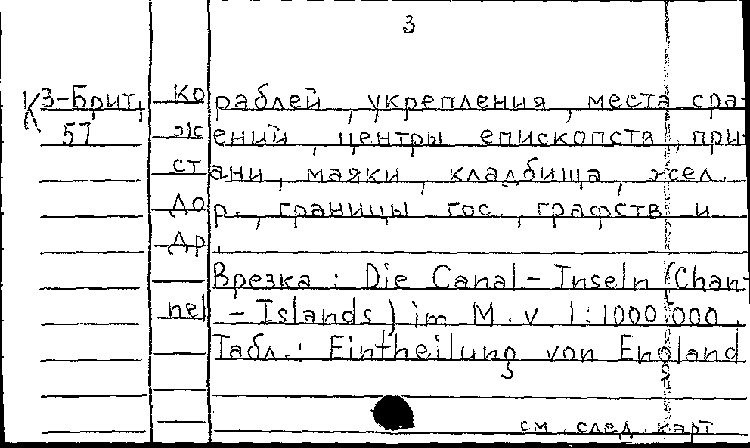 3
К3-Брит, кораблей, укрепления, места сра-
57 жений, центры епископств, при-
стани, маяки, кладбища, жел.
дор., границы гос., графств и
др.
Врезка: Die Canal-Inseln (Chan-
nel-Islands) im M. v 1:1000 000.
Табл.: Eintheilung von England
см. след. карт